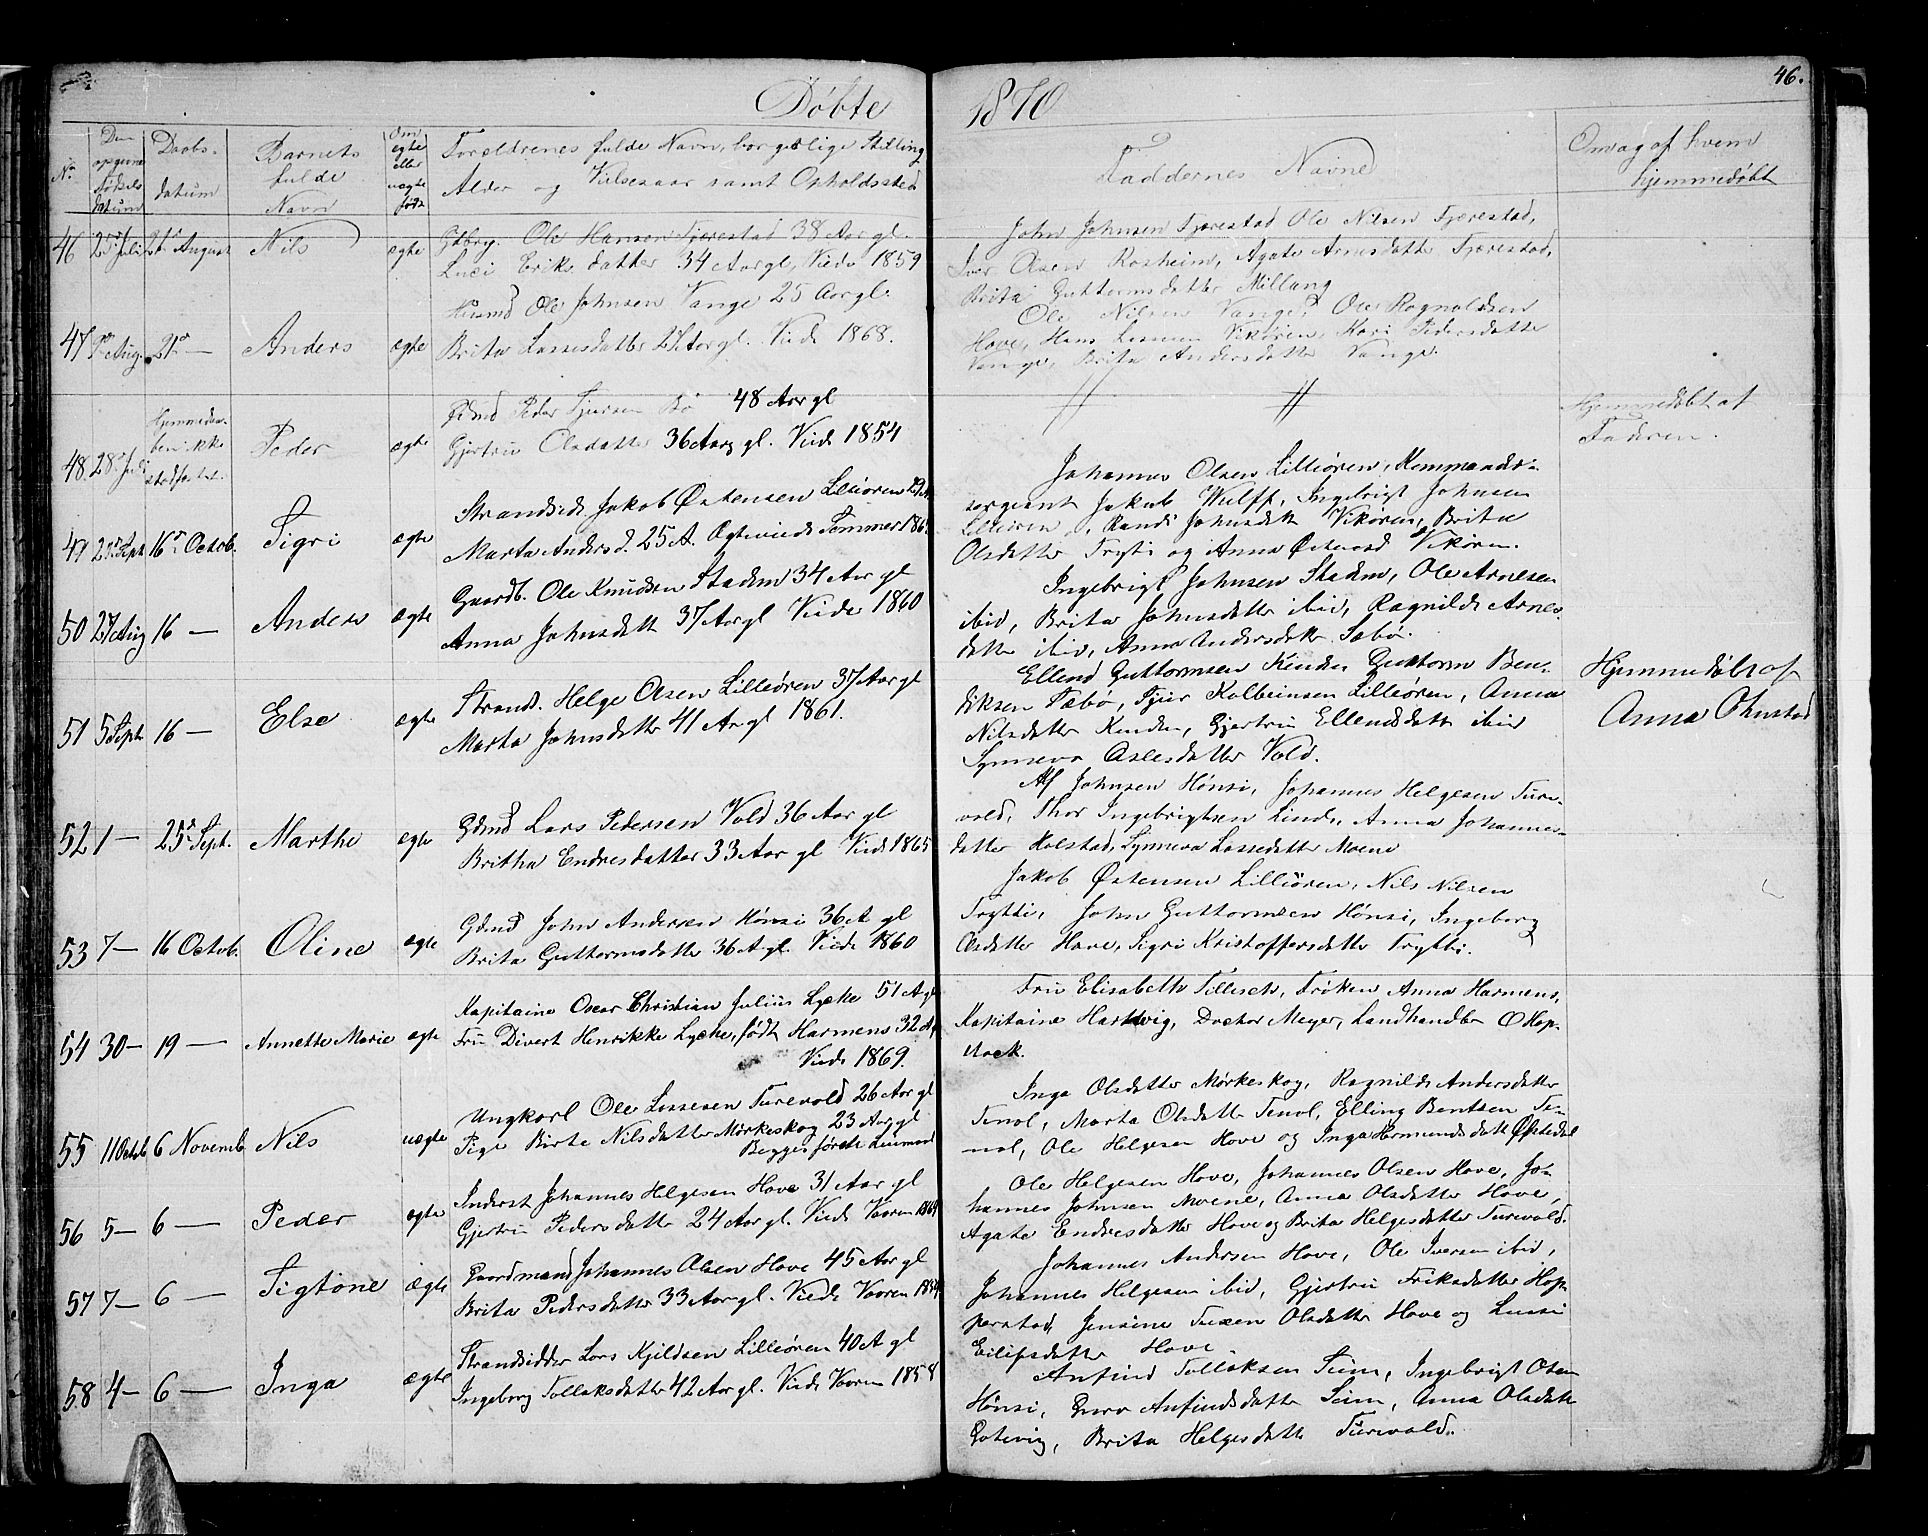 Døbte
1870
46.
No.
Den opgivne fødsels datum
Daabs-
datum
Barnets
fulde
Navn
Om ægte eller uægte født
Forældrenes fulde Navn, borgerlige Stilling
Alder og Vielsesaar samt Opholdssted
Faddernes Navne
Om og af hvem
hjemmedøbt
46 25de Juli 21de August Nils ægte
Gdbrg. Ole Hansen Tjærestad 38 Aar gl.
Luci Eriksdatter 34 Aar gl, Viede 1859
John Johnsen Tjærestad Ole Nilsen Tjærestad,
Iver Olsen Rosheim, Agate Arnesdatter Tjærestad,
Brita Guttormsdatter Millung
47 Aug. 21de — Anders ægte
Husmd Ole Johnsen Vange 25 Aar gl.
Brita Lassesdatter 27 Aar gl. Viede 1868.
Ole Nilsen Vange, Ole Ragnaldsen
Hove, Hans Vikøren, Kari Pedersdatter
Vange, Brita Andersdatter Vange.
48 28de Juli Hjemmedaa-
ben ikke
stadfæstet. Peder ægte
Gdmd Peder Tjersen Bø 48 Aar gl
Gjertrui Olsdatter 36 Aar gl. Viede 1854
// //
Hjemmedøbt af
Faderen.
49 Sept 16de Octob. Sigri ægte
Strandsid. Jakob Østensen Lilleøren
Marta Andersd. 25 A. Ægteviede Sommer
Johannes Olsen Lilleøren, Kommander-
sergeant Jakob Wulff, Ingebrigt Johnsen
Lilleøren, Randi Johnsdatt Vikøren, Brita
Olsdatter Trytti og Anna Østensd Vikøren.
50 27 Aug 16 — Anders ægte
Gaardb. Ole Knudsen Stadm 34 Aar gl
Anna Johnsdatt 37 Aar gl Viede 1860
Ingebrigt Johnsen Stadm, Ole Arnesen
ibid, Brita Johnsdatter ibid, Ragnilde Arnes-
datter ibid, Anna Andersdatte Sæbø.
51 5 Sept 16 — Else ægte
Strand. Helge Olsen Lilleøren 37 Aar gl
Marta Johnsdatter 41 Aar gl 1861.
Ellend Guttormsen Kinden Guttorm Ben-
diksen Sæbø, Tjer Kolbeinsen Lilleøren, Anna
Nilsdatter Kinden, Gjertrui Ellendsdatte ibid
Synneva Aslesdatter Vold.
Hjemmedøbt af
Anna Ohnstad
52 1 — 25de Sept. Marthe ægte
Gdmd Lars Pedersen Vold 36 Aar gl
Britha Endresdatter 33 Aar gl Viede 1865
Alf Johnsen Hønsi, Johannes Helgesen Ture-
vold, Thor Ingebrigtsen Linde, Anna Johannes-
datter Holstad, Synneva Lassedatter Moene
53 7 — 16 Octob. Oline ægte
Gdmd John Andersen Hønsi 36 A gl
Brita Guttormsdatte 36 A gl. Viede 1860
Jakob Østensen Lilleøren, Nils Nilsen
Trytti, John Guttormsen Hønsi, Ingeborg
Olsdatter Hove, Sigri Kristoffersdatter Trytti.
54 30 — 19 — Annette Marie ægte
Kapitaine Oscar Christian Julius Lyche 51 A gl
Fru Divert Henrikke Lyche, født Harmens 32 A.
Viede 1869.
Fru Elisabeth Tillisch, Frøken Anna Harmens,
Kapitaine Hartvig, Doctor Meyer, Landhandler O Hop-
stock.
55 11 Octob 6 Novemb. Nils uægte
Ungkarl Ole Lassesen Turevold 26 Aar gl
Pige Birte Nilsdatter Mørkeskog 23 Aar gl
Begges første Leiermaal
Inga Olsdatter Mørkeskog, Ragnilde Andersdatter
Tenol, Marta Olsdatte Tenol, Elling Bentsen Te-
nol, Ole Helgesen Hove og Inga Hermundsdatt Østedal
56 5 — 6 — Peder ægte
Inderst Johannes Helgesen Hove 31 Aar gl
Gjertrui Pedersdatte 24 Aar gl. Viede Vaaren 1869
Ole Helgesen Hove, Johannes Olsen Hove, Jo-
hannes Johnsen Moene, Anna Olsdatter Hove,
Agate Endresdatter Hove og Brita Helgesdatter Turevold.
57 7 — 6 — Sigtone ægte
Gaardmand Johannes Olsen Hove 45 Aar gl
Brita Pedersdatter 33 Aar gl. Viede Vaaren
Johannes Andersen Hove, Ole Iversen ibid,
Johannes Helgesen ibid, Gjertrui Eriksdatter Hop-
perstad, Jensine Tuxen Olsdatter Hove og Lussi
Eilifsdatter Hove.
58 4 — 6 — Inga ægte
Strandsidder Lars Kjildsen Lilleøren 40 A gl
Ingeborg Tollaksdatter 42 Aar gl. Viede Vaaren 1858
Anfind Tollaksen Seim, Ingebrigt Olsen
Hønsi, Guro Anfindsdatte Seim, Anna Olsdatte
Gotevig, Brita Helgesdatt Turevold.